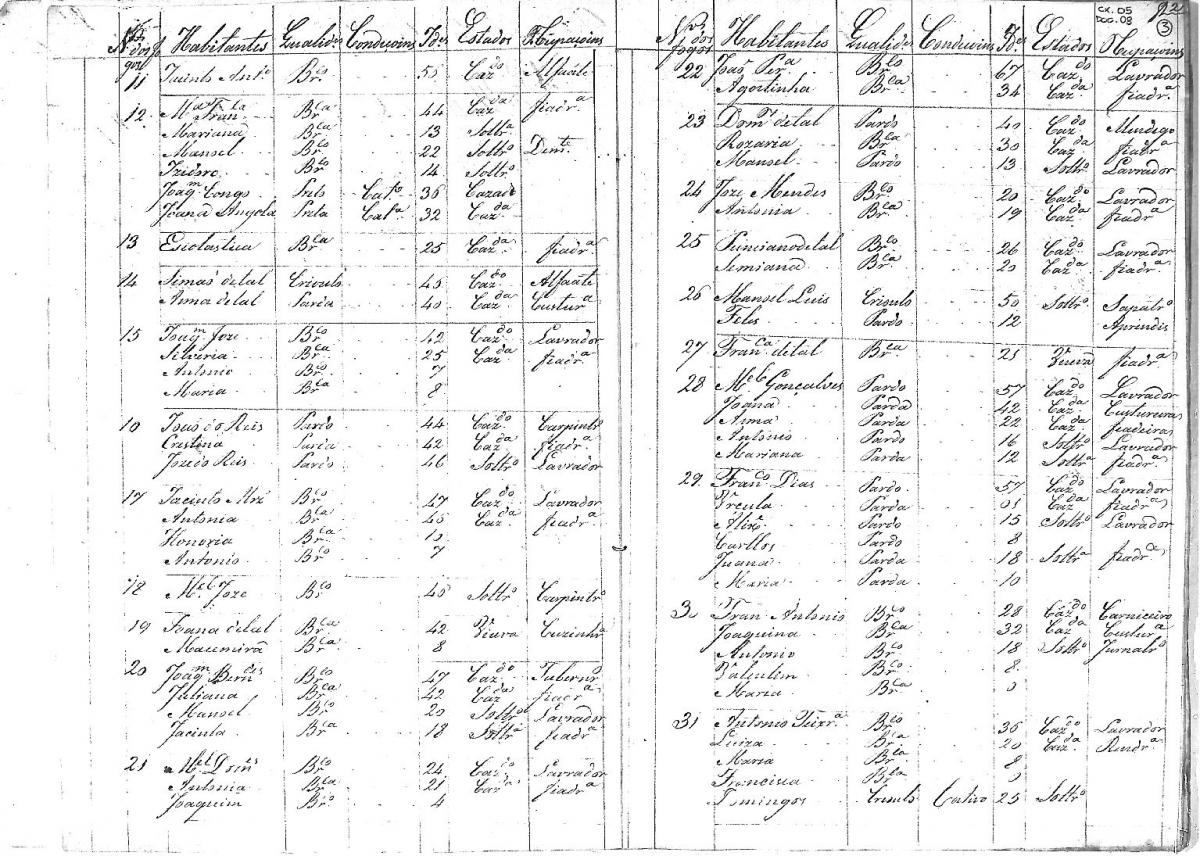 CX. 05
DOC. 08
92
3
Nos dos fogos Habitantes Qualides Condiçoins Ides Estados Ocupaçoins
11 Antº Brco 55 Cazdo Alfaáte
12 Ma Franca Brca 44 Cazda fiadra
Mariana Brca 13 Soltra
Manoel Brco 22 Soltro Demte
Izidoro Brco 14 Soltro
Joaqm Congo Preto Cato 36 Cazado
Joana Angola Preta Cata 32 Cazda
13 Escolastica Brca 25 Cazda fiadra
14 Simaõ de tal Crioulo 45 Cazdo Alfaáte
Anna de tal Parda 40 Cazda Custura
15 Joaqm Joze Brco 42 Cazdo Lavrador
Silveria Brca 25 Cazda fiadra
Antonio Brco 7
Maria Brca 8
16 Joaõ do Reis Pardo 44 Cazdo Carpintro
Cristina Parda 42 Cazda fiadra
Joze do Reis Pardo 46 Soltro Lavrador
17 Jacinto Brco 47 Cazdo Lavrador
Antonia Brca 40 Cazda fiadra
Honoria Brca
Antonio Brco 7
18 Mel Joze Brco 45 Soltro Carpintro
19 Joana de tal Brca 42 Viuva Cuzinhra
Maximira Brca 8
20 Joaqm Berndes Brco 47 Cazdo Taberno
Juliana Brca 42 Cazda fiadra
Manoel Brco 20 Soltro Lavrador
Jacinta Brca 18 Soltra fiadra
21 Mel Brco 24 Cazdo Lavrador
Antonia Brca 21 Cazda fiadra
Joaquim Bro 4
Nos dos fogos Habitantes Qualides Condiçoins Ides Estados Ocupaçoins
22 Joaõ Pera Brco 67 Cazdo Lavrador
Agostinha Brca 34 Cazda fiadra
23 Domos de tal Pardo 40 Cazdo Mendigo
Rozaria Brca 30 Cazda fiadra
Manoel Pardo 13 Soltro Lavrador
24 Joze Mendes Brco 20 Cazdo Lavrador
Antonia Brca 19 Cazda fiadra
25 Ponciano de tal Brco 26 Cazdo Lavrador
Brca 20 Cazda fiadra
26 Manoel Luis Crioulo 50 Soltro Sapatro
Felis Pardo 12 Aprendis
27 Franca de tal Brca Viuva fiadra
28 Mel Gonçalves Pardo 57 Cazdo Lavrador
Joana Parda 42 Cazda Custureira
Anna Parda 22 Cazda fiadeira
Antonio Pardo 16 Soltro Lavrador
Mariana Parda 12 Soltra fiadra
29 Franco Dias Pardo 57 Cazdo Lavrador
Vrcula Parda Cazda fiadra
Pardo 15 Soltro Lavrador
Carllos Pardo 8
Juana Parda 18 Soltra fiadra
Maria Parda 10
3 Fran Antonio Brco 28 Cazdo Carniceiro
Joaquina Brca 32 Cazda Custura
Antonio Brco 18 Soltro Jurnalro
Valentim Brco 8
Maria Brca
31 Antonio Brco 36 Cazdo Lavrador
Luiza Brca 20 Cazda
Maria Brca 8
Francisca Brca
Domingos Crioulo Cativo 25 Soltro